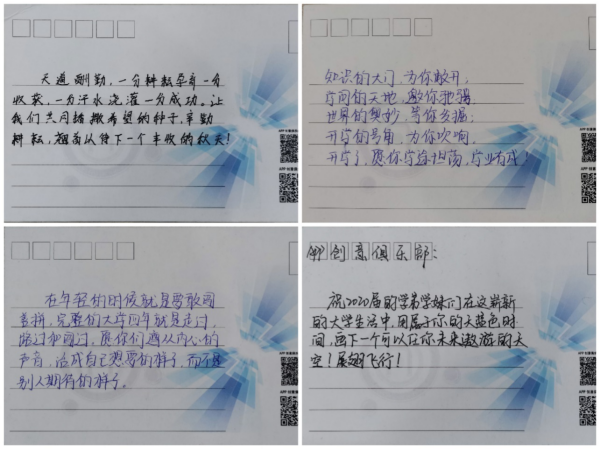 天道酬勤，一分耕耘孕育一分
收获，一分汗水浇灌一分成功。让
我们共同播撒希望的种子，辛勤
耕耘，翘首以待下一个丰收的秋天！
知识的大门，为你敞开；
学问的天地，邀你驰骋；
世界的奥妙，等你发掘；
开学的号角，为你吹响。
开学了，愿你学途坦荡，学业有成！
在年轻的时候就是要敢闯
敢拼，完整的大学四年就是走过，
路过和闯过，愿你们遵从内心的
声音，活成自己想要的样子，而不是
别人期待的样子。
创意俱乐部：
祝2020届的学弟学妹们在这崭新
的大学生活中，用属于你的天蓝色时
间，画下一个可以在你未来遨游的天
空！展翅飞行！